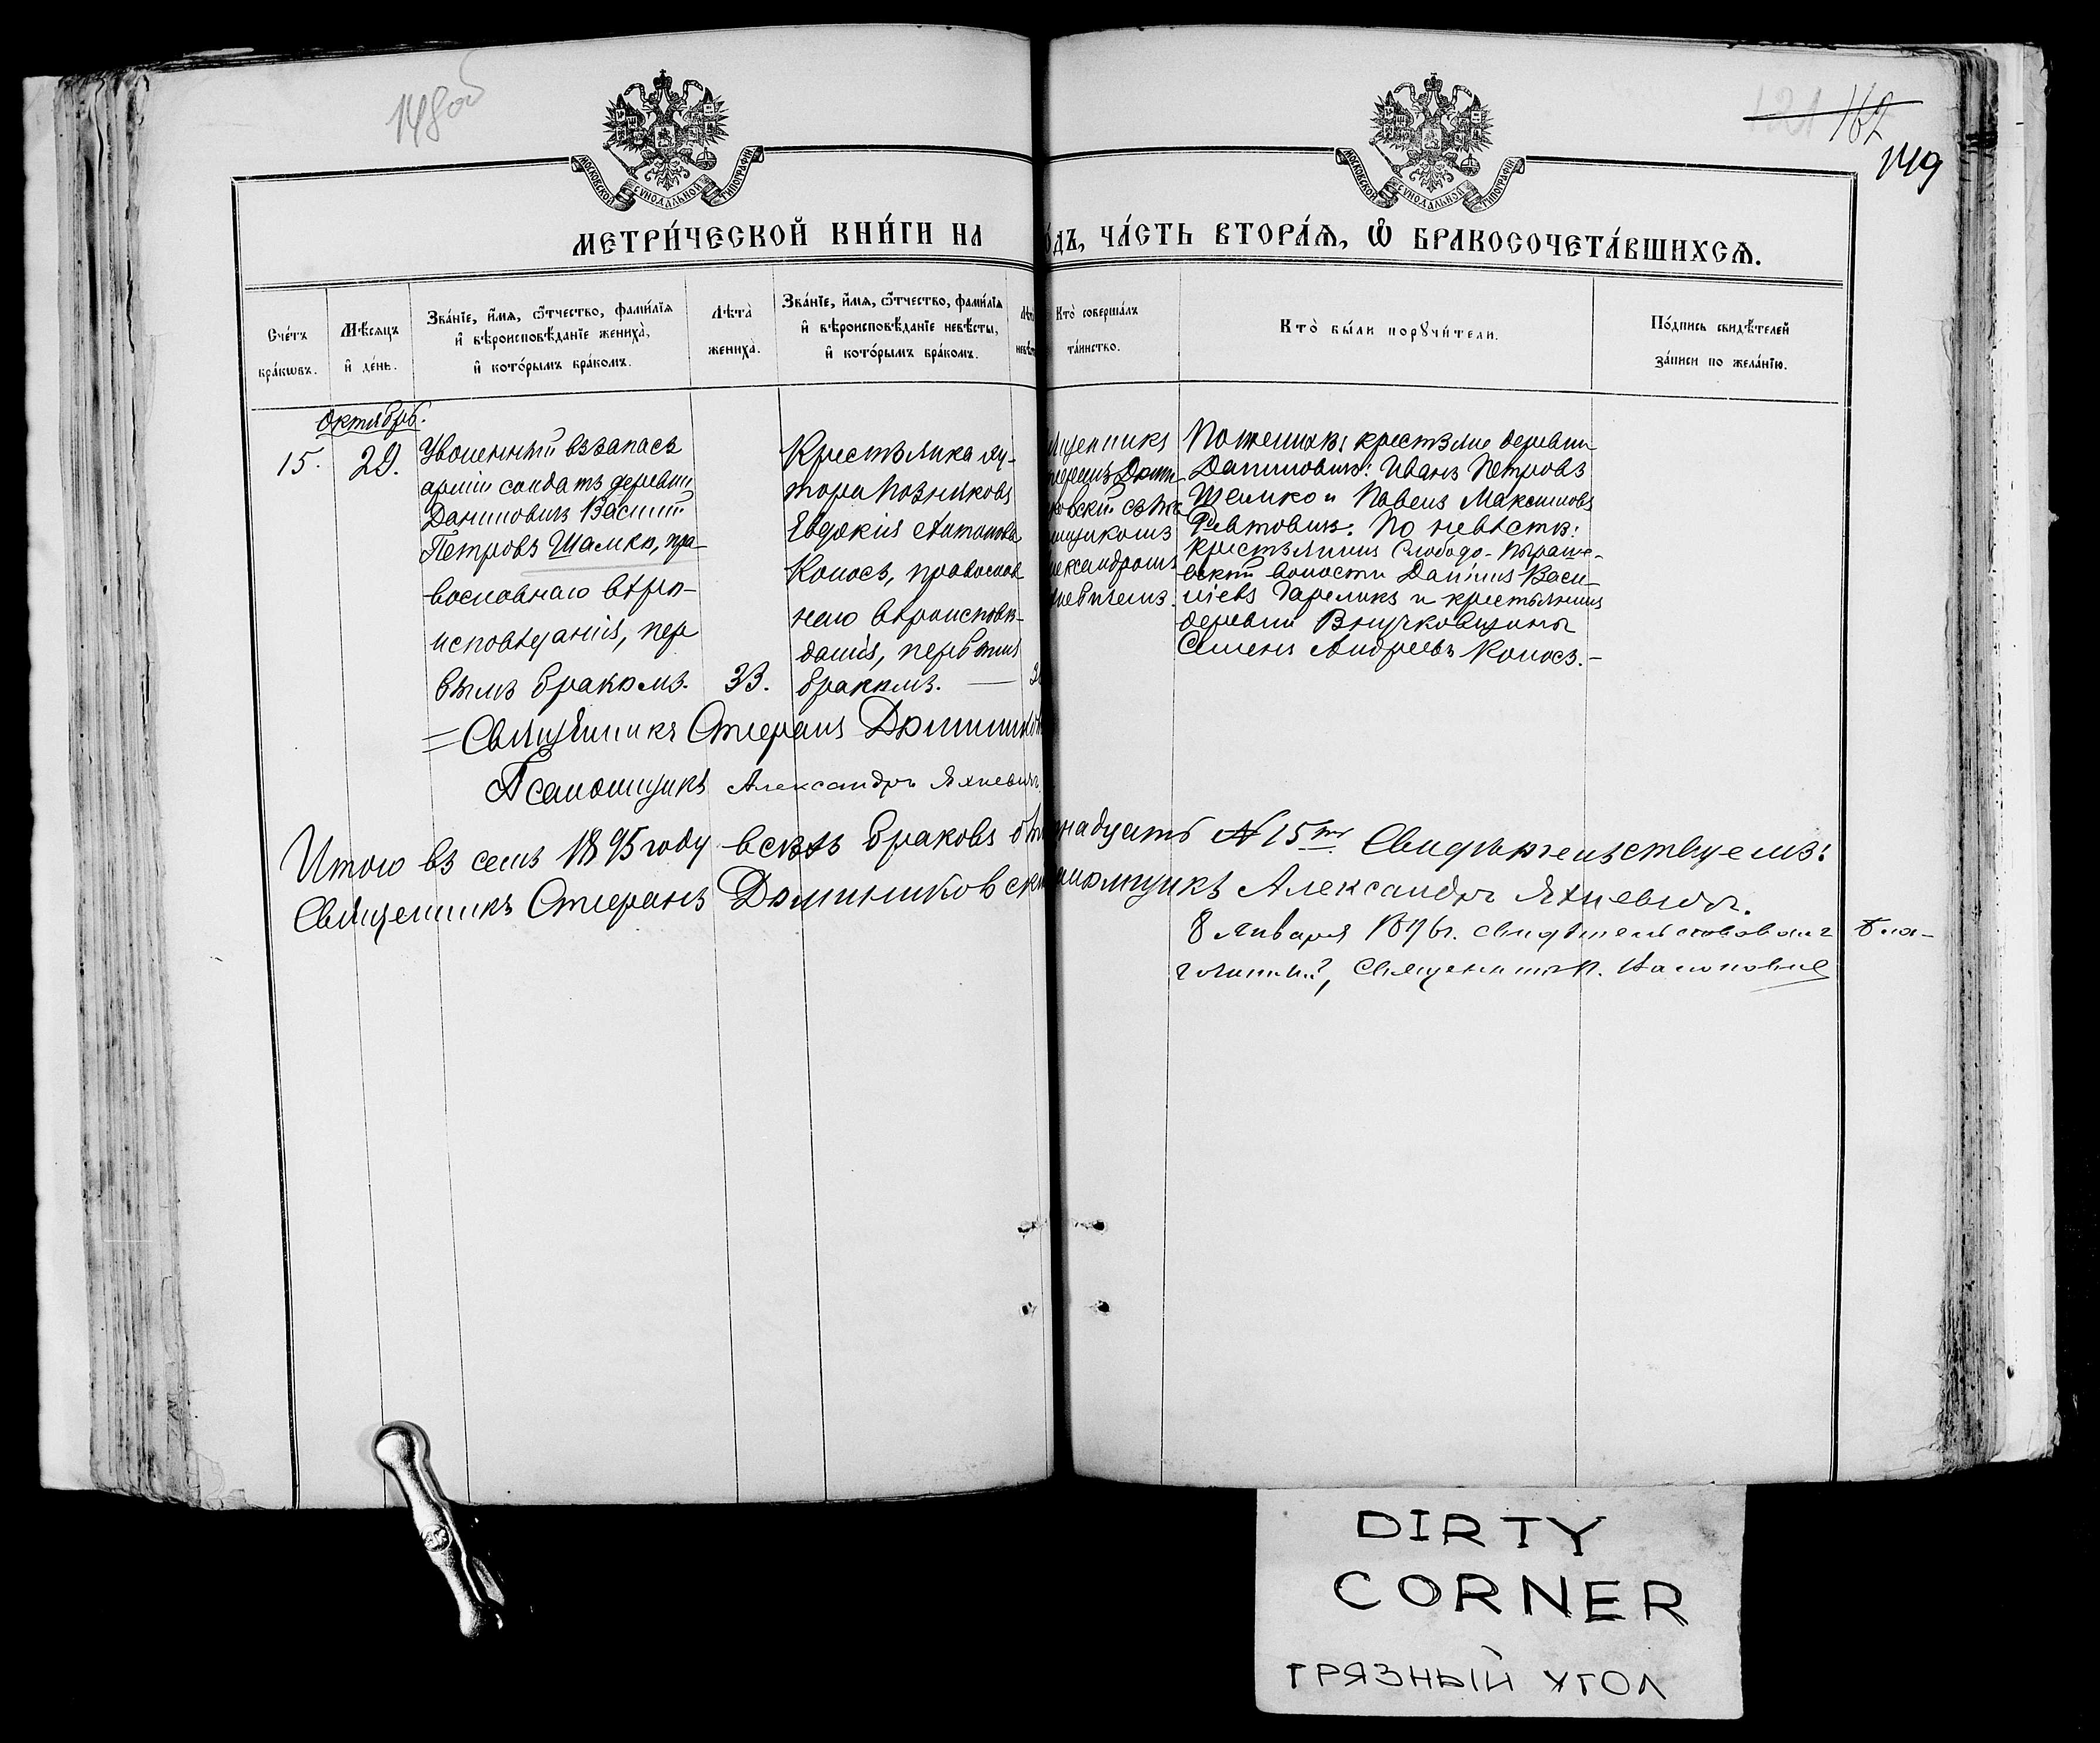 148об
162
149
МОСКОВСКОЙ СѴНОДАЛЬНОЙ ТИПОГРАФІИ
МОСКОВСКОЙ СѴНОДАЛЬНОЙ ТИПОГРАФІИ
МЕТРИ́ЧЕСКОЙ КНИ́ГИ НА
О́ДЪ, ЧА́СТЬ ВТОРА́Ѧ, Ѽ БРАКОСОЧЕТА́ВШИХСѦ.
Сче́тъ
бра́кѡвъ.
Мѣ́сяцъ
и҆ де́нь.
Зва́нїе, и҆́мѧ, ѻ҆́тчество, фами́лїѧ
и҆ вѣроисповѣ́данїе жениха̀,
и҆ кото́рымъ бра́комъ.
Лѣта̀
жениха̀.
Зва́нїе, и҆́мѧ, ѻ҆́тчество, фами́лїѧ
и҆ вѣроисповѣ́данїе невѣ́сты,
и҆ кото́рымъ бра́комъ.
Кто̀ соверша́лъ
та́инство.
Кто̀ бы́ли порꙋчи́тели.
По́дпись свидѣ́телей
за́писи по жела́нїю.
Октябрь.
15.
29.
Уволенный въ запасъ
арміи солдатъ деревни
Даниловичъ Василій
Петровъ Шамко, пра-
вославнаго вѣро-
исповѣданія, пер
вымъ бракомъ.
33.
Крестьянка ху-
тора Позняковъ
Евдокія Антонова
Колосъ, православ
наго вѣроисповѣ-
данія, первымъ
бракомъ. —
щенникъ
Доми
ковскій съ Пса
ломщикомъ
лександромъ
невичемъ.
По женихѣ: крестьяне деревни
Даниловичъ: Иванъ Петровъ
и Павелъ Максимовъ
По невѣстѣ:
крестьянинъ Слободо-Пыраше-
вской волости Даніилъ Васи-
ліевъ Гареликъ и крестьянинъ
деревни
Семенъ Андреевъ Колосъ.—
Священникъ Стефанъ Домиников
Псаломщикъ Александръ Яхневичъ.
Итого въ семъ 1895 году всѣхъ браковъ пятнадцать № 15ть Свидѣтельствуемъ:
Священникъ Стефанъ Доминиковскій Псаломщикъ Александръ Яхневичъ.
8 Января 1896 г. свидѣтельствовалъ Бла-
гочинный, Священникъ
DIRTY
CORNER
ГРЯЗНЫЙ УГОЛ